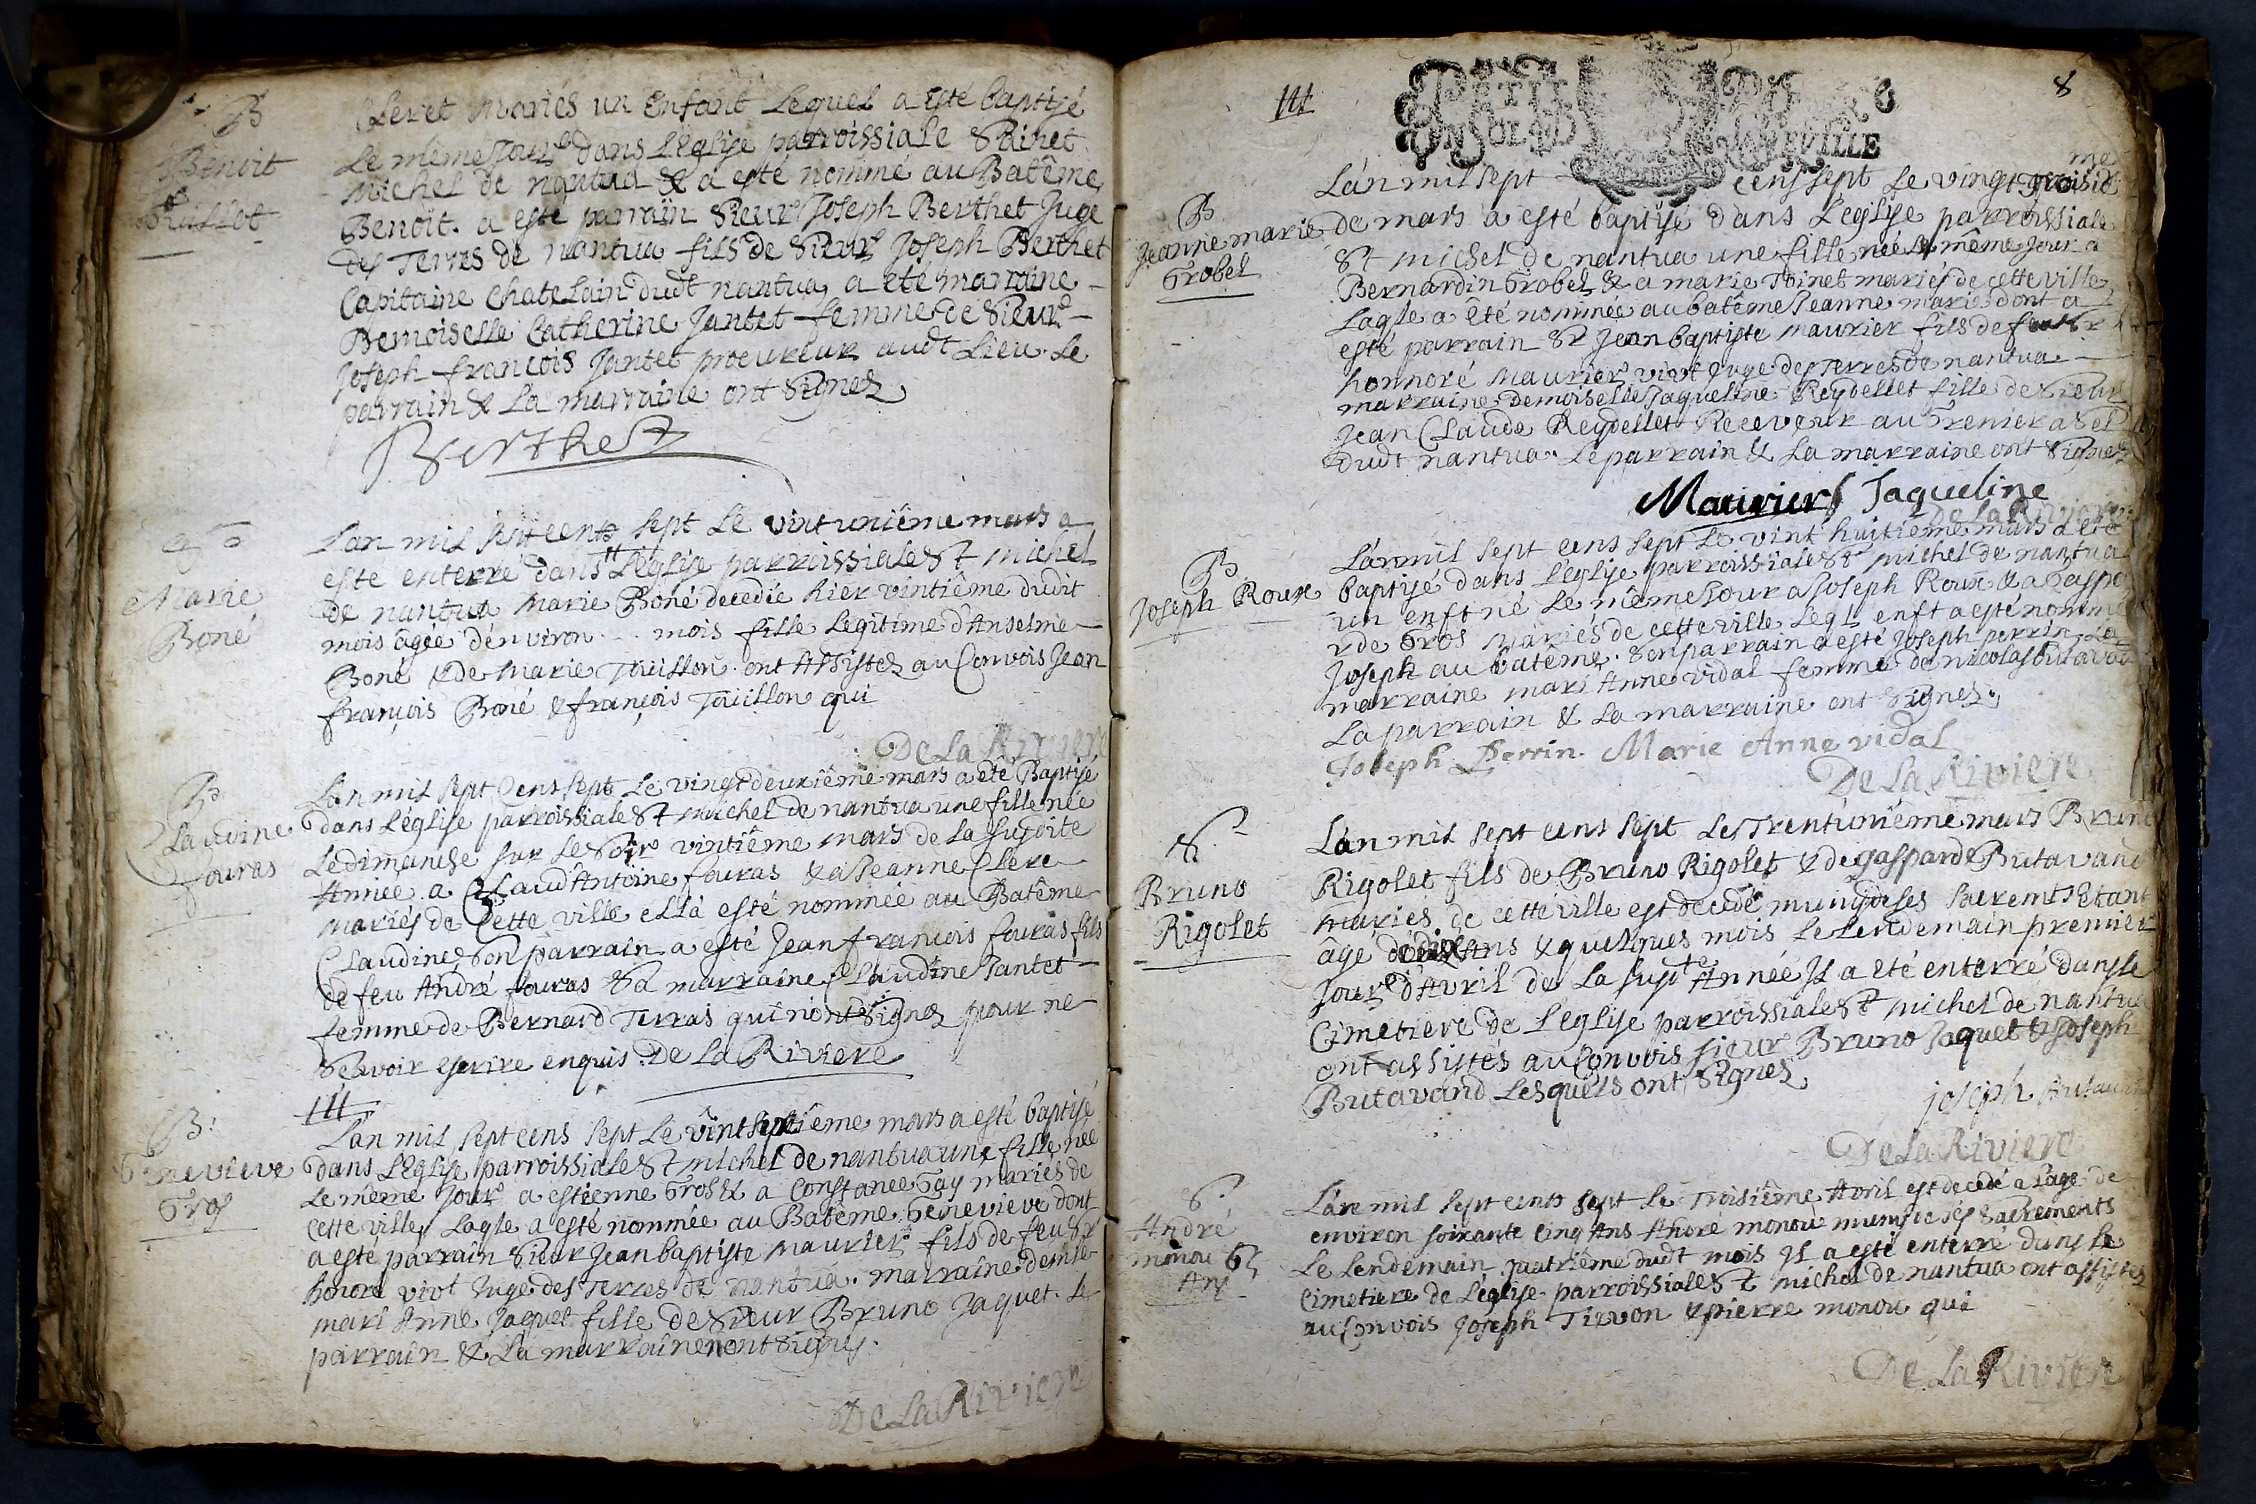 B
Benoit
Cleret Mariés un Enfant Lequel a esté baptisé
Le même Jour dans L'Eglise parroissiale Sainct
Michel de nantua & a esté nommé au Batême
Benoit. a esté parrain Sieur Joseph Berthet Juge
des Terres de nantua fils de Sieur Joseph Berthet
Capitaine Chatelain dudt nantua, a eté marraine
Demoiselle Catherine Jantet femme de Sieur
Joseph françois Jantet procureur audt Lieu. Le
parrain & La marraine ont Signez
Berthet
Marie
Boné
Lan mil sept cents sept Le vint uniême mars a
esté enterré dans L'eglise parroissiale St michel
de nantua Marie Boné decedée hier vintiême dudit
mois agée d'environ ... mois fille Legitime d'Anselme
Boné & de Marie Toüillon. ont Assistez au Convois Jean
françois Boné & françois Toüillon qui
De La Riviere
B
Claudine
fouras
Lan mil sept Cens sept Le vingt deuxiême mars a eté Baptisé
dans L'église parroissiale St michel de nantua une fille née
Le dimanche sur Le Soir vintiême mars de La susdite
Année a Claud'Antoine fouras & a Jeanne Clere
mariés de Cette ville ella esté nommée au Batême
Claudine Son parrain a esté Jean françois fouras fils
de feu André fouras Sa marraine Claudine Jantet
femme de Bernard Terras qui n'ont Signez pour ne
Sçavoir escrire enquis De La Riviere
B.
Genevieve
Gros
Lan mil sept cens sept Le vint septiême mars a esté baptisé
dans L'Eglise parroissiale St michel de nantua une fille née
Le même Jour a estienne Gros & a Constance Gay mariés de
Cette ville Laqle a esté nommée au Batême Genevieve dont
a esté parrain Sieur Jean baptiste Maurier fils de feu Sr
honoré vivt Juge des Terres de Nantua. marraine demlle
mari Anne Jaquet fille de Sieur Bruno Jaquet. Le
parrain & La marraine n'ont Signés.
De La Riviere
8
GENEVILLE
B
Jeanne marie
Grobel
L'an mil sept cens sept Le vingt troisiême
de mars a esté baptisé dans L'eglise parroissiale
St michel de nantua une fille née Le même Jour a
Bernardin Grobel & a marie Toinet mariés de cette ville
Laqle a êté nommée au batême Jeanne marie dont a
esté parrain Sr Jean baptiste Maurier fils de feu Sr
honnoré Maurier vivt Juge des Terres de nantua
marraine Demoiselle Jaqueline Reydellet fille de Sieur
Jean Claude Reydellet Receveur au Grenier a Sel
dudt nantua. Le parrain & La marraine ont Signez
Maurier Jaqueline
De La Riviere
B
Joseph Roux
L'an mil sept cens sept Le vint huitiême mars a eté
baptisé dans L'église parroissiale St michel de nantua
un enft né Le même Jour a Joseph Roux & a Gaspa
rde Gros mariés de cette ville Leql enft a esté nommé
Joseph au batême. Son parrain a esté Joseph perrin, La
marraine mari Anne vidal femme de nicolas Butavan
La parrain & La marraine ont Signez
Joseph Perrin. Marie Anne vidal
De La Riviere
Bruno
Rigolet
L'an mil sept cens sept Le Trentuniême mars Bruno
Rigolet fils de Bruno Rigolet & de gasparde Butavand
mariés de cette ville est decedé muny de ses Sacremts Etant
âgé de dix ans & quelques mois Le Lendemain premier
Jour d'Avril de La suste Année Jl a eté enterré dans le
Cimetiere de L'eglise parroissiale St michel de nantua
ont assistés au Convois sieur Bruno Jaquet & Joseph
Butavand Lesquels ont Signez
joseph Butavand
De La Riviere
André
monou 65
Ans
L'an mil sept cents sept Le Troisiême Avril est decedé a L'age de
environ soixante cinq Ans André monou muni de ses Sacrements
Le Lendemain quatriême dudt mois Jl a esté enterré dans Le
Cimetiere de L'église parroissiale St michel de nantua ont assistez
au Convois Joseph Tiévon & pierre monou qui
De La Riviere